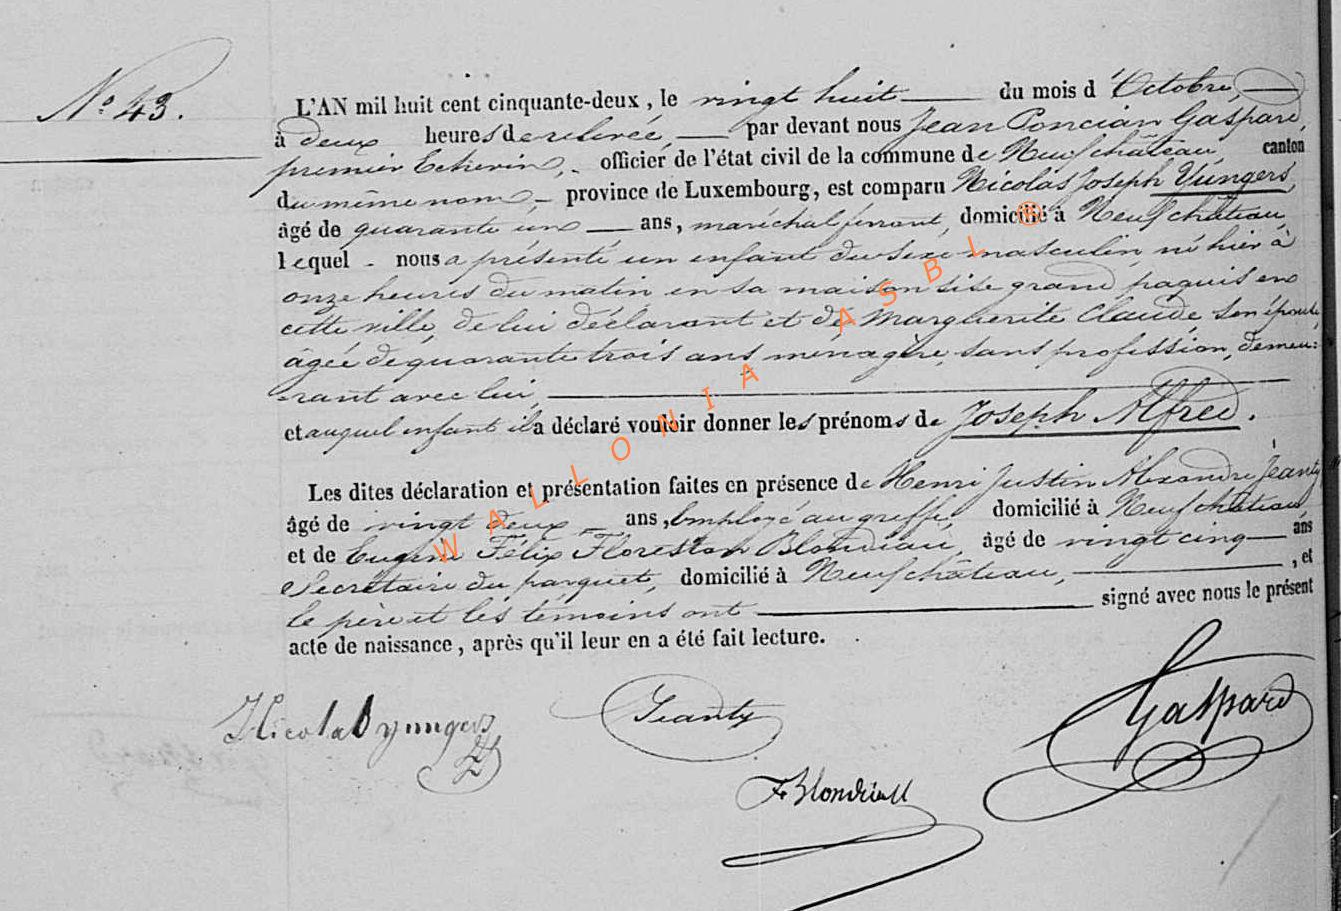 N.° 43.
L'AN mil huit cent cinquante-deux, le vingt huit du mois d'Octobre,
à deux heures de relevée, par devant nous Jean Poncian Gaspard,
premier Echevin, officier de l'état civil de la commune de Neufchâteau, canton
du même nom, province de Luxembourg, est comparu Nicolas Joseph Yungers,
âgé de quarante un ans, maréchal ferrant, domicilié à Neufchâteau,
lequel nous a présenté un enfant du sexe masculin, né hier à
onze heures du matin en sa maison sise grand paquis en
cette ville, de lui déclarant et de Marguerite Claude son épouse,
âgée de quarante trois ans, ménagère, sans profession, demeu:
rant avec lui,
et auquel enfant il a déclaré vouloir donner les prénoms de Joseph Alfred.
Les dites déclaration et présentation faites en présence de Henri Justin Alexandre Jeanty
âgé de vingt deux ans, Employé au greffe, domicilié à Neufchâteau,
et de Eugène Félix Florestan Blondiau, âgé de vingt cinq ans
Secrétaire du parquet, domicilié à Neufchâteau, , et
le père et les témoins ont signé avec nous le présent
acte de naissance, après qu'il leur en a été fait lecture.
Nicolas yungers
Jeanty
Gaspard
F. Blondiau
WALLONIA ASBL ®